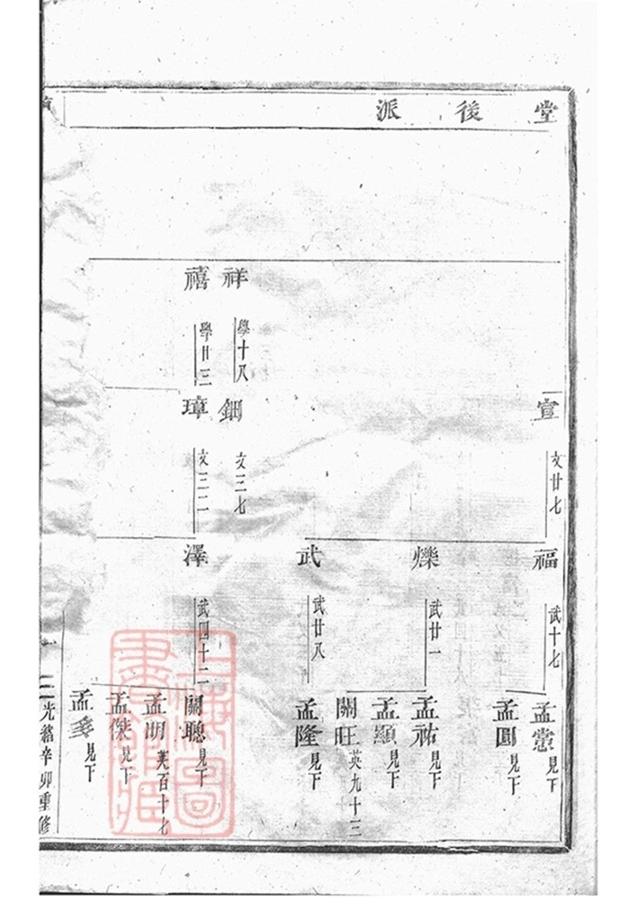 堂後派
宣 文廿七
福 武十七
孟 見下
孟圓 見下
爍 武廿一
孟祐 見下
孟顯 見下
關旺 英九十三
武 武廿八
孟隆 見下
祥 學十八
鈿 文三七
禧 學廿三
璋 文三二
澤 武四十二
關聰 見下
孟明 英百十七
孟傑 見下
孟 見下
光緒辛卯重修
上海圖書館藏